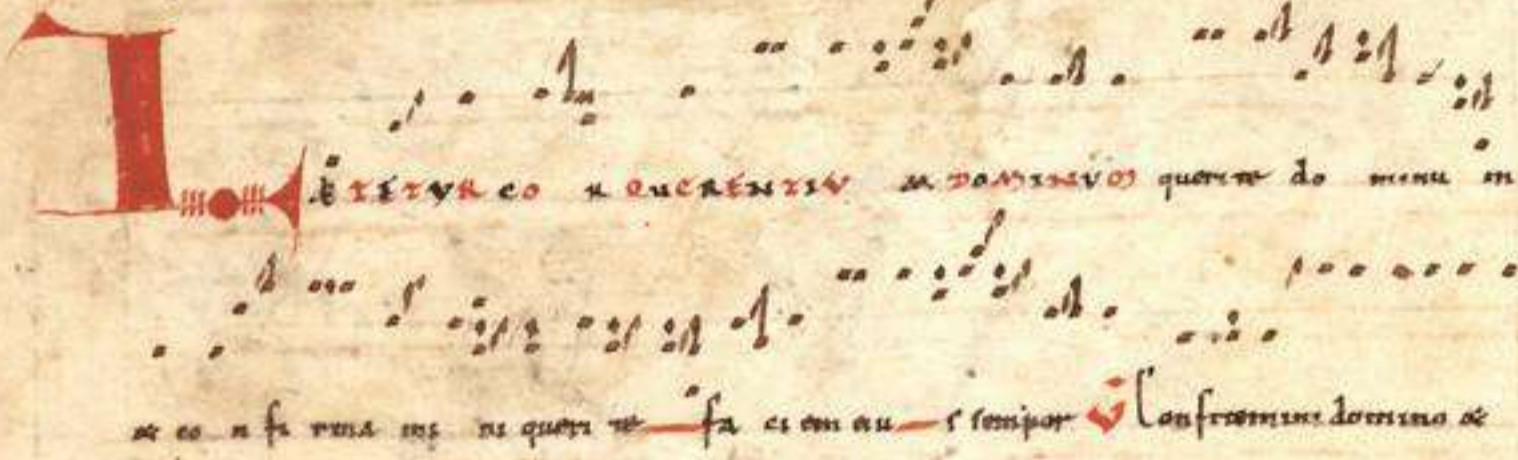 LAETETUR CO R QUERENTIU M DOMINUM querite do minu m
et co n fi rma mi ni queri te fa ci em eiu s semper V Confitemini domino et